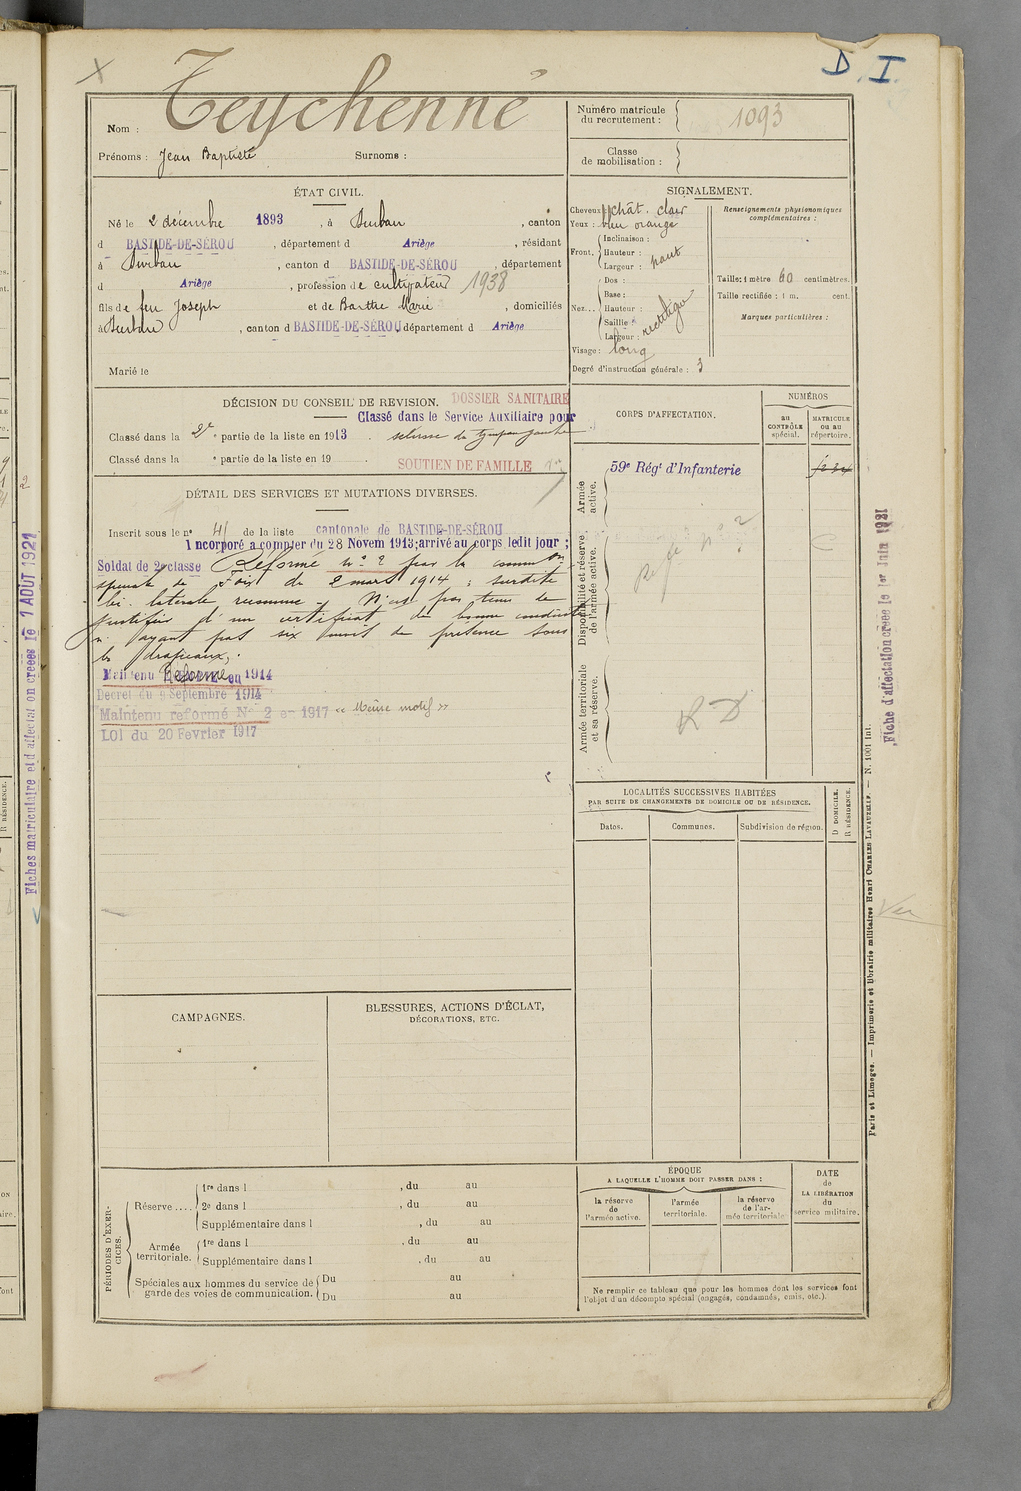 D. I.
Nom : Teychenné
Prénoms : Jean Baptiste Surnoms :
Numéro matricule du recrutement : 1093
Classe de mobilisation :
ÉTAT CIVIL.
Né le 2 décembre 1893, à Durban, canton
d BASTIDE-DE-SÉROU, département d Ariège, résidant
à Durban, canton d BASTIDE-DE-SÉROU, département
d Ariège, profession de cultivateur 1938
fils de feu Joseph et de Barthe Marie, domiciliés
à Durban, canton d BASTIDE-DE-SÉROU département d Ariège
Marié le
SIGNALEMENT.
Cheveux : chât. clair
Yeux : bleu orangé
Front. Inclinaison :
Hauteur : haut
Largeur :
Nez... Dos : rectiligne
Base :
Hauteur :
Saillie :
Largeur :
Visage : long
Degré d'instruction générale : 3
Renseignements physionomiques complémentaires :
Taille : 1 mètre 60 centimètres.
Taille rectifiée : 1 m. cent.
Marques particulières :
DÉCISION DU CONSEIL DE REVISION. DOSSIER SANITAIRE
Classé dans le Service Auxiliaire pour
Classé dans la 2e partie de la liste en 1913. sclérose du tympan gauche
Classé dans la e partie de la liste en 19 .
SOUTIEN DE FAMILLE
DÉTAIL DES SERVICES ET MUTATIONS DIVERSES.
Inscrit sous le n° 41 de la liste cantonale de BASTIDE-DE-SÉROU
Incorporé a compter du 28 Novem 1913; arrivé au corps ledit jour ;
Soldat de 2e classe Réformé n° 2 par la common
spéciale de Foix du 2 mars 1914 ; surdité
bi-latérale reconnue. N'est pas tenu de
justifier d'un certificat de bonne conduite
n'ayant pas six mois de présence sous
les drapeaux.
Maintenu Réformé en 1914
Decret du 9 Septembre 1914
Maintenu réformé N° 2 en 1917 « Même motif »
LOI du 20 Fevrier 1917
CORPS D'AFFECTATION.
NUMÉROS
au CONTRÔLE spécial.
MATRICULE OU AU répertoire.
Armée active.
59e Régt d'Infanterie
Disponibilité et réserve de l'armée active.
Réf de n° 2
Armée territoriale et sa réserve.
R D
LOCALITÉS SUCCESSIVES HABITÉES
PAR SUITE DE CHANGEMENTS DE DOMICILE OU DE RÉSIDENCE.
Dates.
Communes.
Subdivision de région.
D DOMICILE.
R RÉSIDENCE.
CAMPAGNES.
BLESSURES, ACTIONS D'ÉCLAT,
DÉCORATIONS, ETC.
PÉRIODES D'EXERCICES.
Réserve.... 1re dans l , du au
2e dans l , du au
Supplémentaire dans l , du au
Armée territoriale. 1re dans l , du au
Supplémentaire dans l , du au
Spéciales aux hommes du service de garde des voies de communication. Du au
Du au
ÉPOQUE
A LAQUELLE L'HOMME DOIT PASSER DANS :
la réserve de l'armée active.
l'armée territoriale.
la réserve de l'armée territoriale
DATE de LA LIBÉRATION du service militaire.
Ne remplir ce tableau que pour les hommes dont les services font
l'objet d'un décompte spécial (engagés, condamnés, omis, etc.).
Paris et Limoges. — Imprimerie et librairie militaires Henri CHARLES-LAVAUZELLE. — N. 1001 Int.
Fiche d'affectation créée le 1er Juin 1931
Fiches matriculaire et d'affectation créées le 1 AOUT 1921
R RÉSIDENCE.